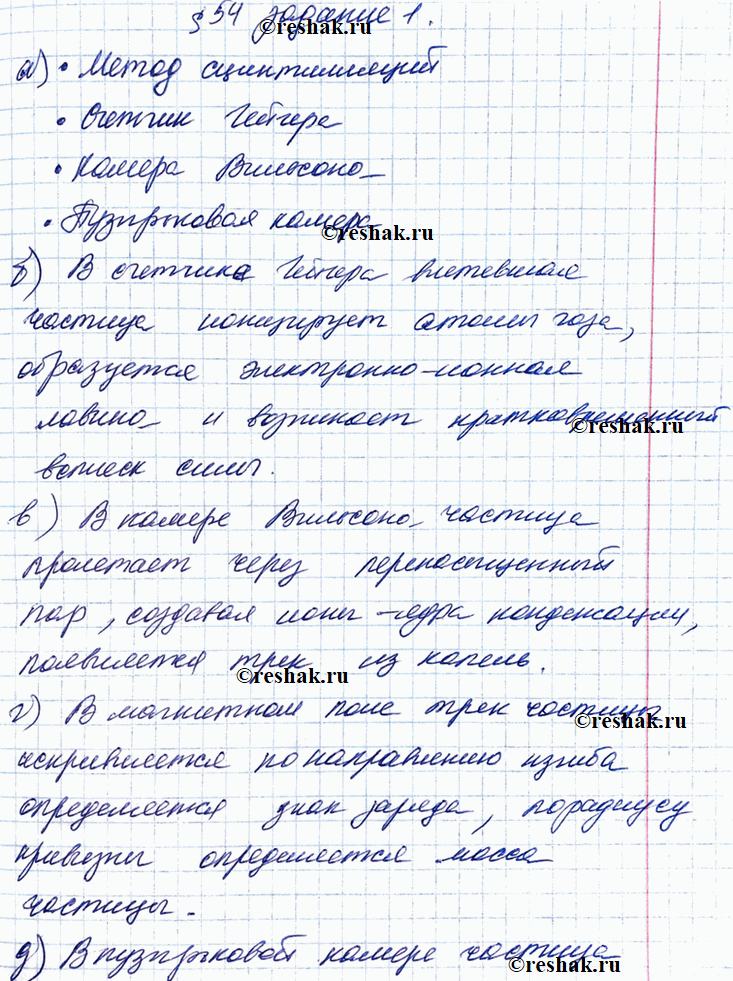 § 54 задание 1.
©reshak.ru
а) • Метод сцинтилляций
• Счетчик Гейгера
• Камера Вильсона
• Пузырьковая камера
©reshak.ru
б) В счетчике Гейгера влетевшая
частица ионизирует атомы газа,
образуется электронно-ионная
лавина и возникает кратковременный
©reshak.ru
всплеск силы.
в) В камере Вильсона частица
пролетает через перенасыщенный
пар, создавая ионы - ядра конденсации,
появляется трек из капель.
©reshak.ru
г) В магнитном поле трек частицы
©reshak.ru
искривляется по направлению изгиба
определяется знак заряда, по радиусу
кривизны определяется масса
частицы.
д) В пузырьковой камере частица
©reshak.ru